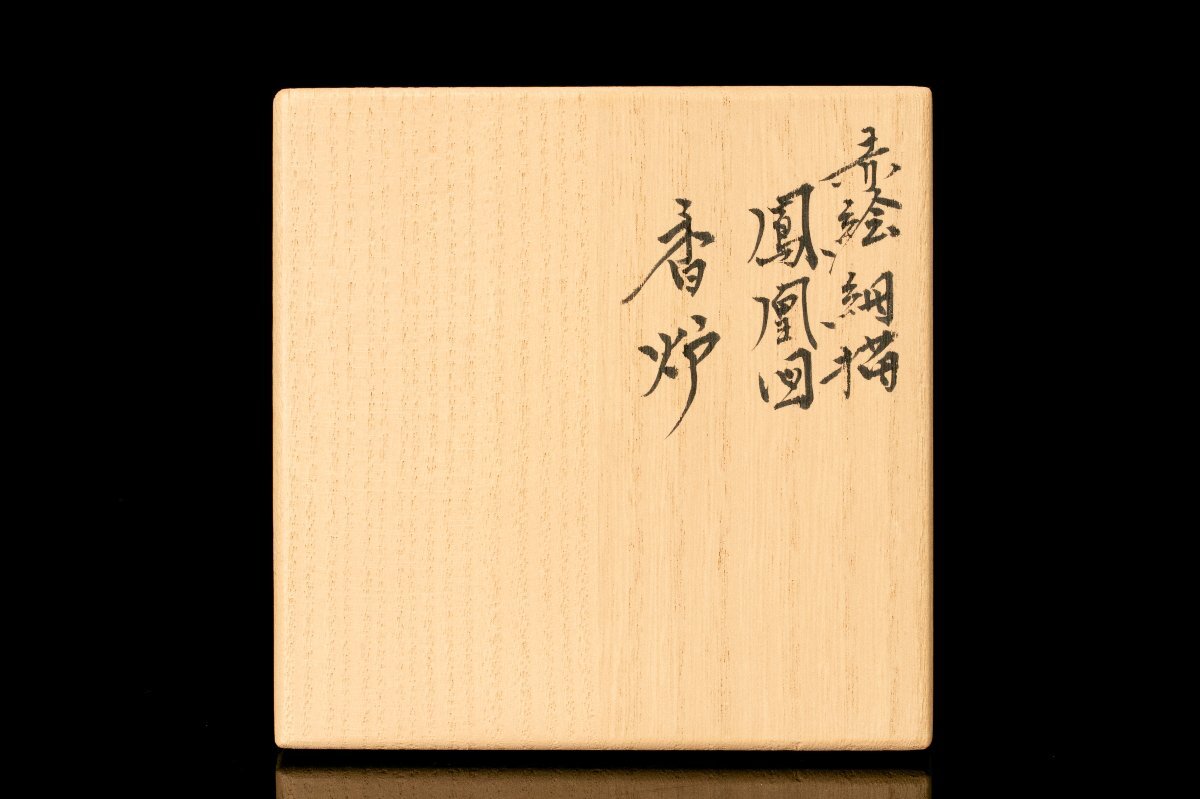 赤絵細描
鳳凰図
香炉